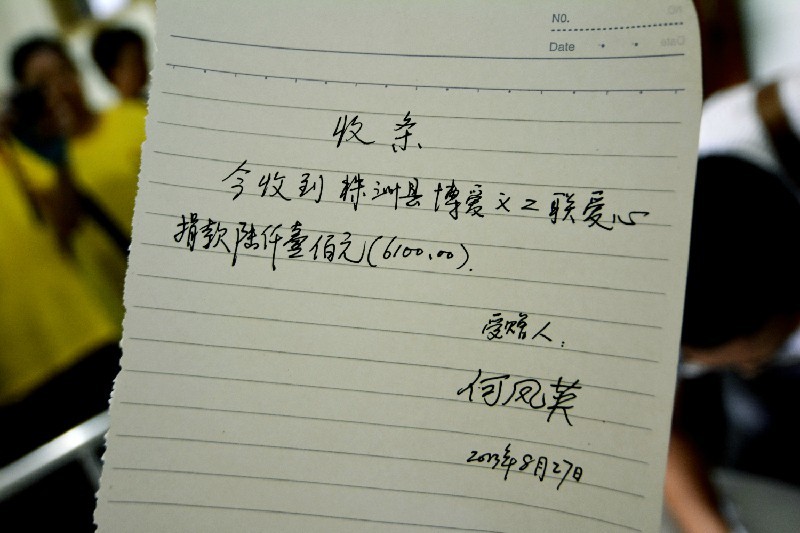 NO.
Date
收条
今收到株洲县博爱义工联爱心
捐款陆仟壹佰元(6100.00).
受赠人:
何凤英
2013年8月27日